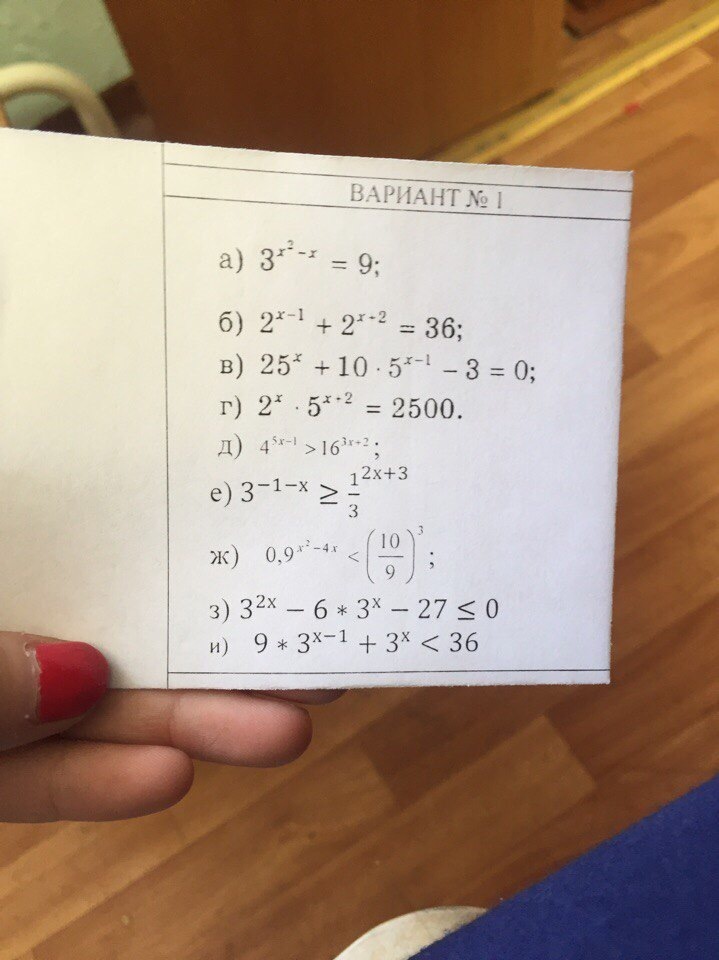 ВАРИАНТ № 1
а) 3^{x^2-x} = 9;
б) 2^{x-1} + 2^{x+2} = 36;
в) 25^x + 10 · 5^{x-1} - 3 = 0;
г) 2^x · 5^{x+2} = 2500.
д) 4^{5x-1} > 16^{3x+2};
е) 3^{-1-x} ≥ \frac{1}{3}^{2x+3}
ж) 0,9^{x^2-4x} < (\frac{10}{9})^3;
з) 3^{2x} - 6 * 3^x - 27 ≤ 0
и) 9 * 3^{x-1} + 3^x < 36